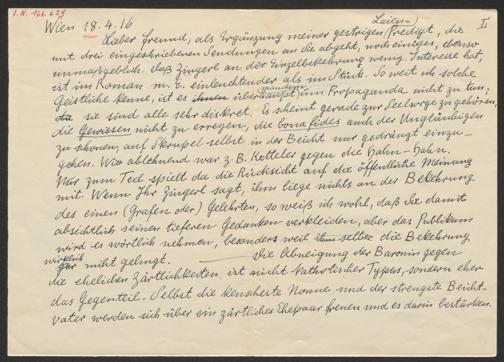 I.N. 166.625
II
Wien 18.4.16
Laien-
Lieber Freund, als Ergänzung meiner gestrigen Predigt, die
mit drei eingeschriebenen Sendungen an Sie abgeht, noch einiges, ebenso
unmaßgeblich. Daß Zingerl an der Einzelbekehrung wenig Interesse hat,
ist im Roman m. E. einleuchtender als im Stück. So weit ich solche
Geistliche kenne, ist es ihnen überhaupt zum Propaganda nicht zu tun;
da sie sind alle sehr diskret. Es scheint gerade zur Seelsorge zu gehören,
die Gewissen nicht zu erregen, die bona fides auch der Ungläubigen
zu schonen, auf Skrupel selbst in der Beicht nur gedrängt einzu-
gehen. Wie ablehnend war z. B. Ketteler gegen die Hahn-Hahn.
Nur zum Teil spielt da die Rücksicht auf die öffentliche Meinung
mit. Wenn Ihr Zingerl sagt, ihm liege nichts an der Bekehrung
des einen (Grafen oder) Gelehrten, so weiß ich wohl, daß Sie damit
absichtlich seinen tieferen Gedanken verkleiden, aber das Publikum
wird es wörtlich nehmen, besonders weil ihm selber die Bekehrung
wirklich
gar nicht gelingt. Die Abneigung der Baronin gegen
die ehelichen Zärtlichkeiten ist nicht katholischer Typus, sondern eher
das Gegenteil. Selbst die keuscheste Nonne und der strengste Beicht-
vater werden sich über ein zärtliches Ehepaar freuen und es darin bestärken.